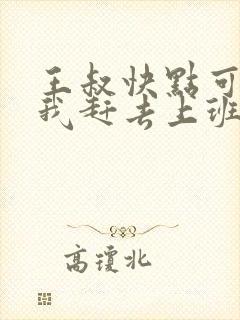 王叔快點可
我赶去上班
高瓊北